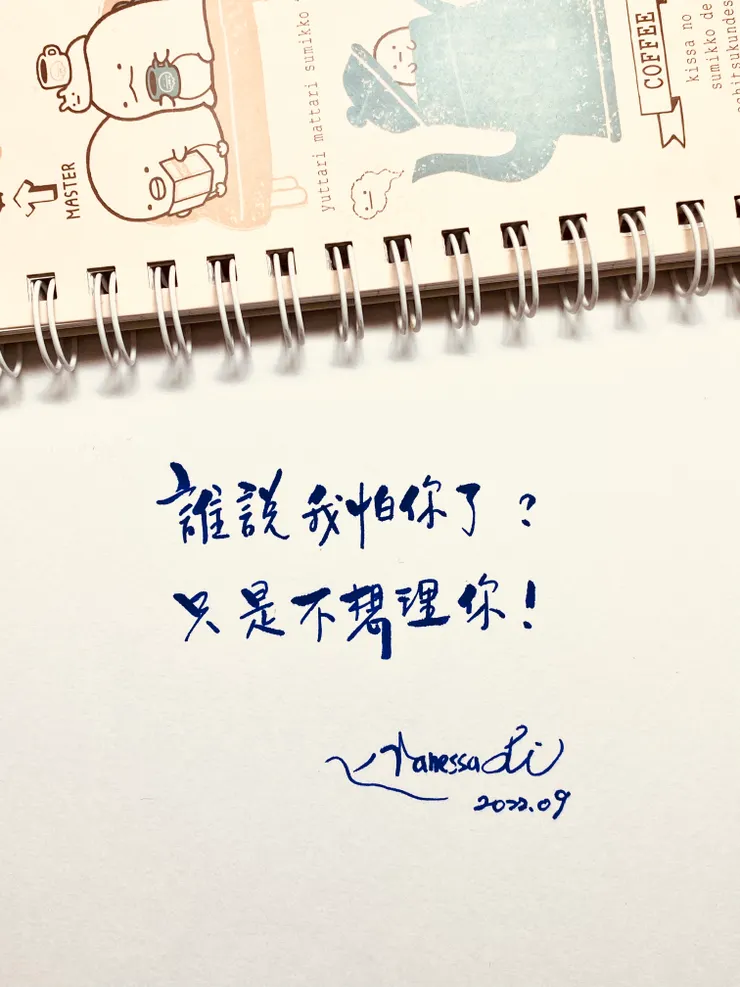 MASTER
yuttari mattari sumikko
COFFEE
kissa no
sumikko de
誰說我怕你了?
只是不想理你!
Vanessa Li
2022.09